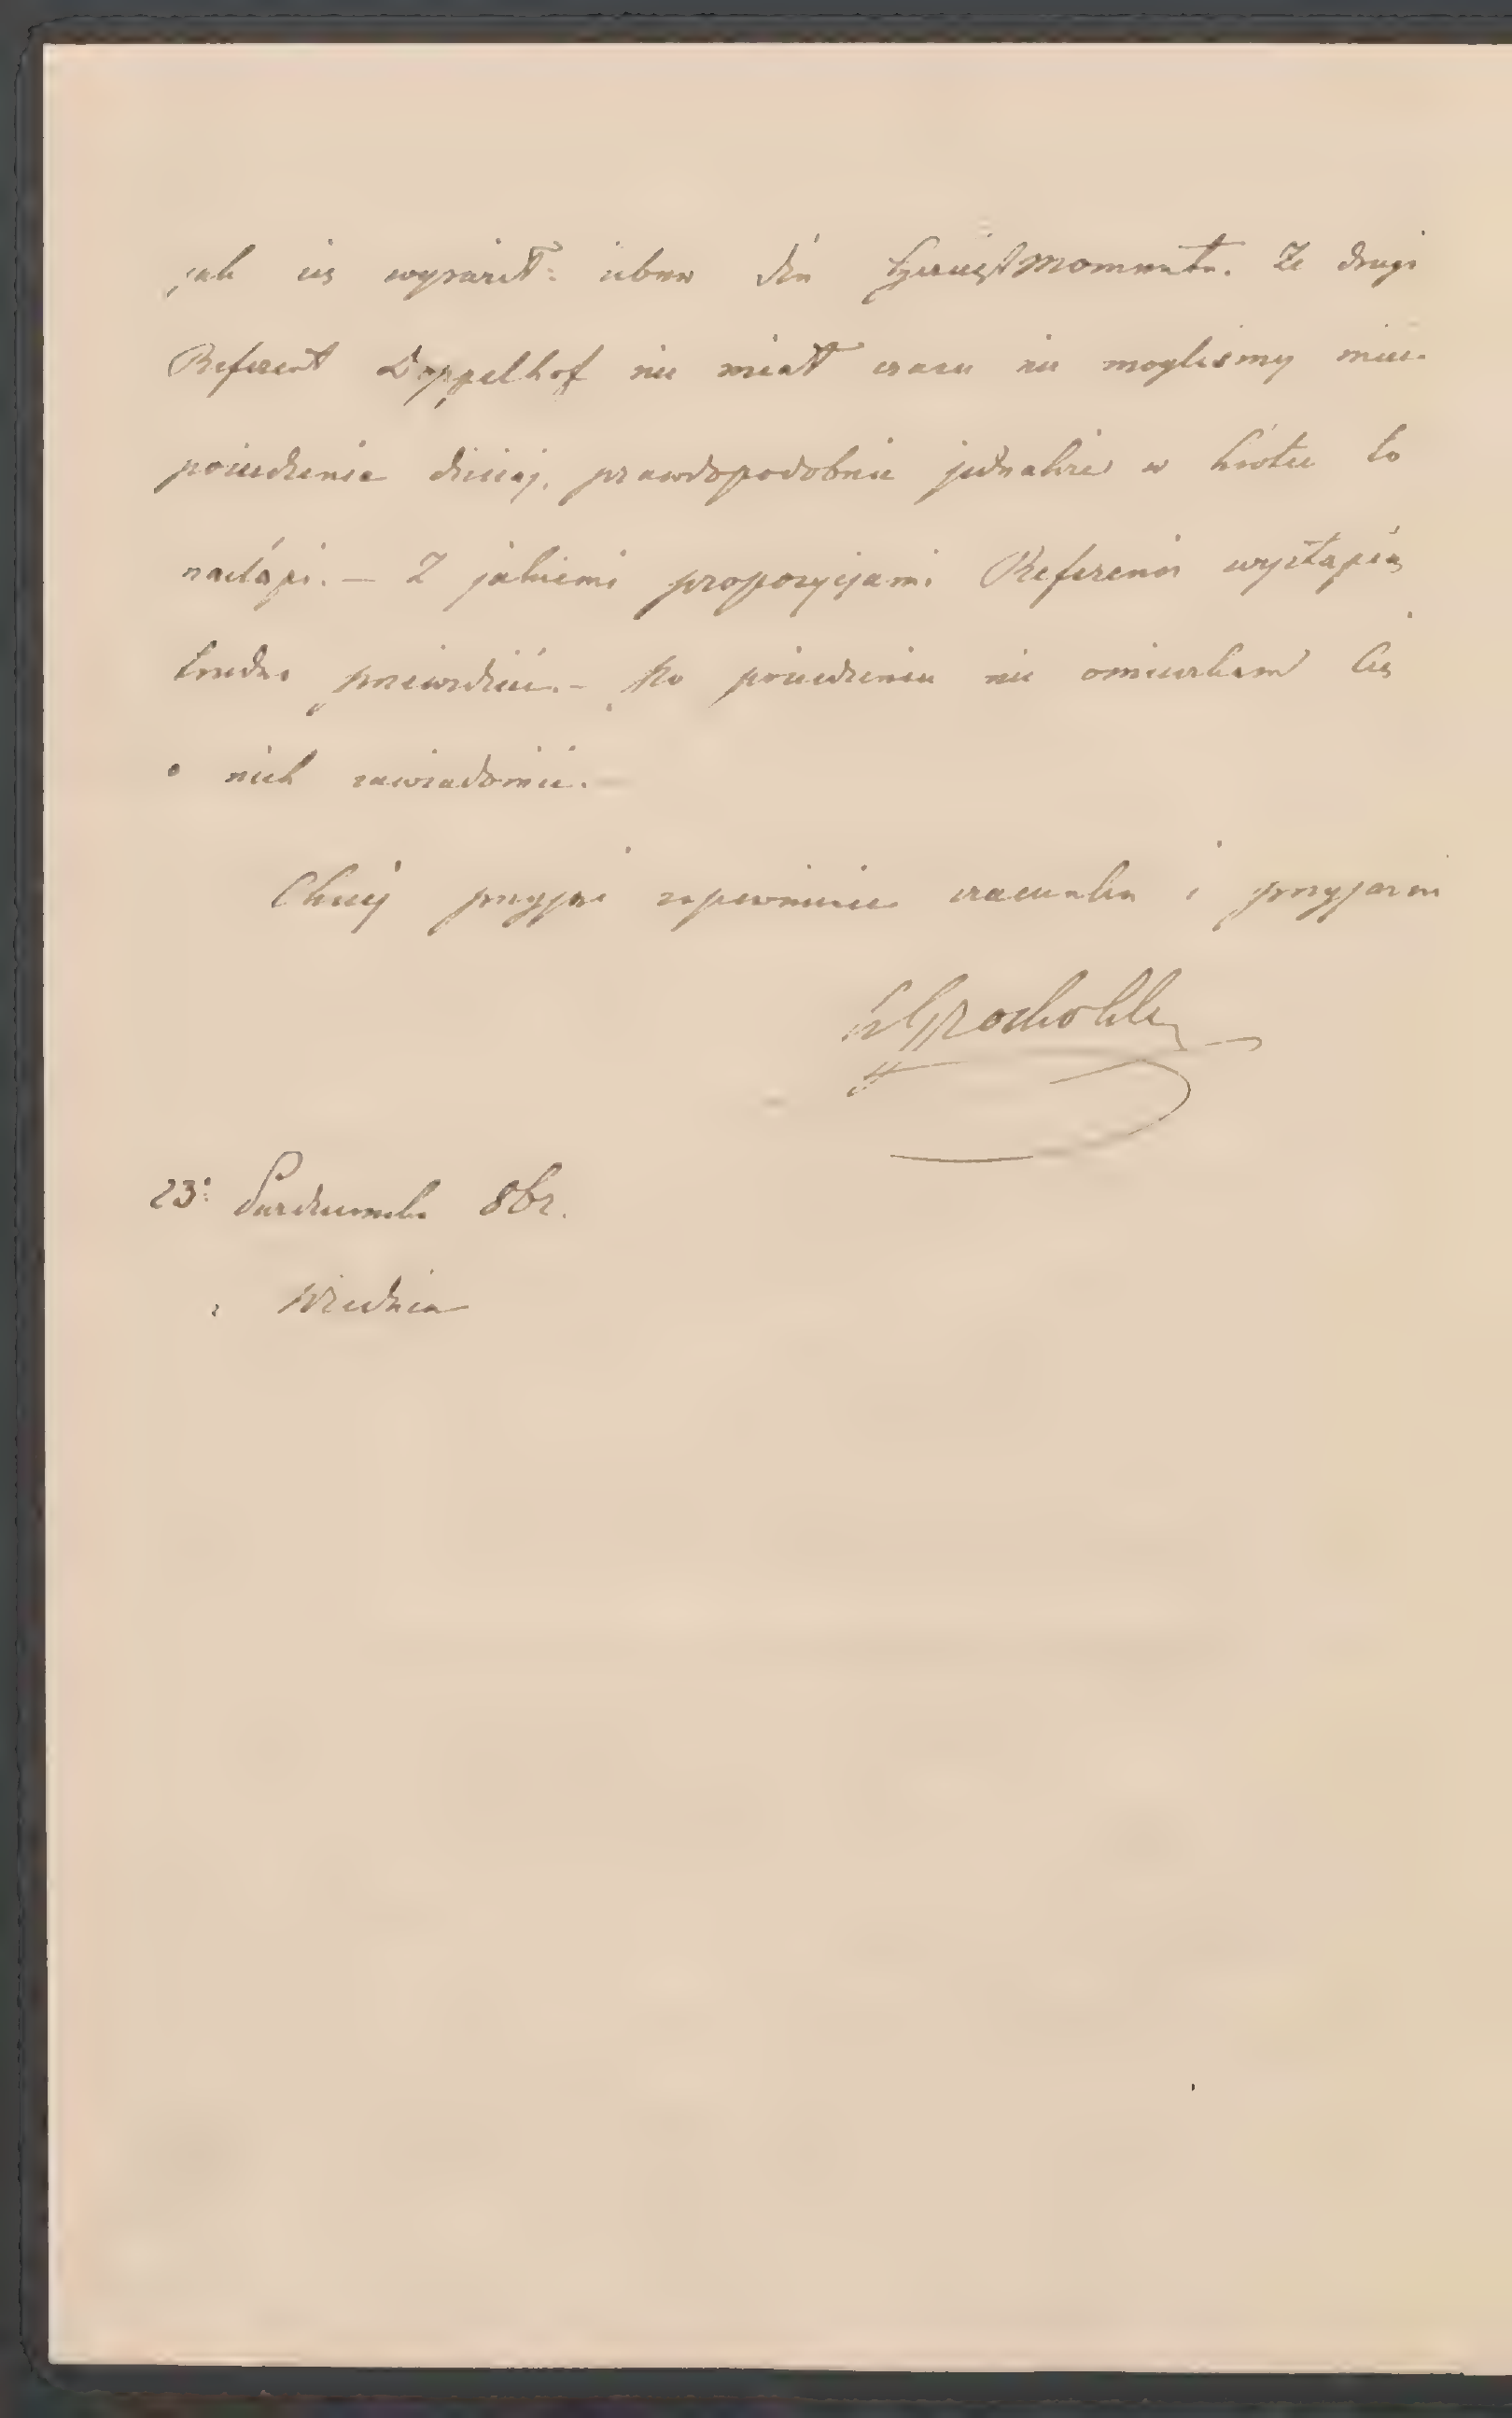 jak się wyraził: über die Momente. Że drugi
Referent Doppelhof nie miał czasu nie mogliśmy mieć
posiedzenia dzisiaj, prawdopodobnie jednakże w krótce to
nastąpi. — Z jakiemi propozycjami Referenci wystąpią
trudno przewidzieć. — Po posiedzeniu nie omieszkam Cię
o nich zawiadomić.
Chciej przyjąć zapewnienie szacunku i przyjaźni
Grocholski
23: Października 862.
z Wiednia